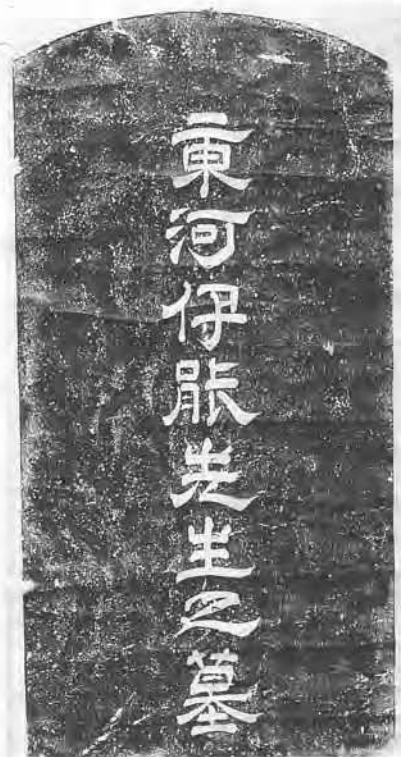 東河伊張先生之墓